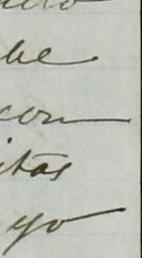 be
con
itas
yo